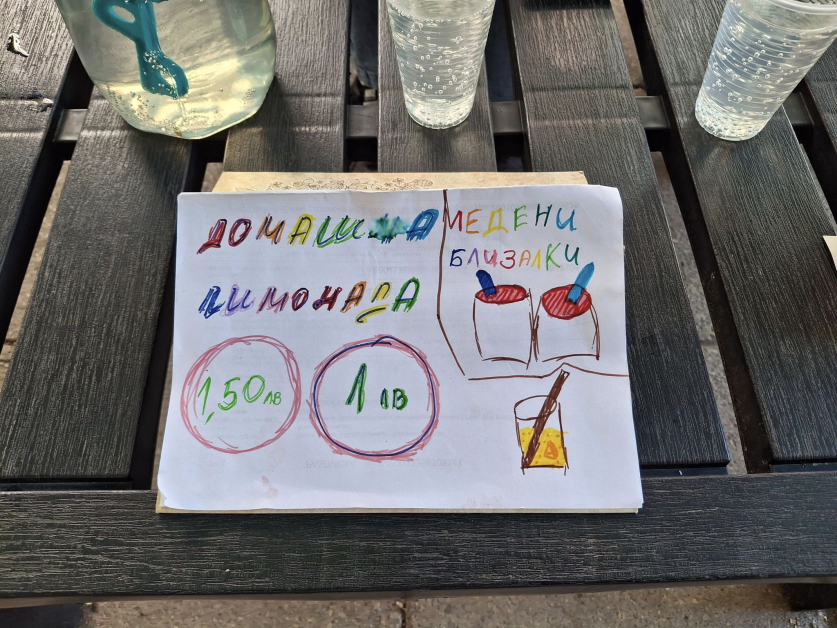 ДОМАШНА
ЛИМОНАДА
1,50 лв
1 лв
МЕДЕНИ
БЛИЗАЛКИ